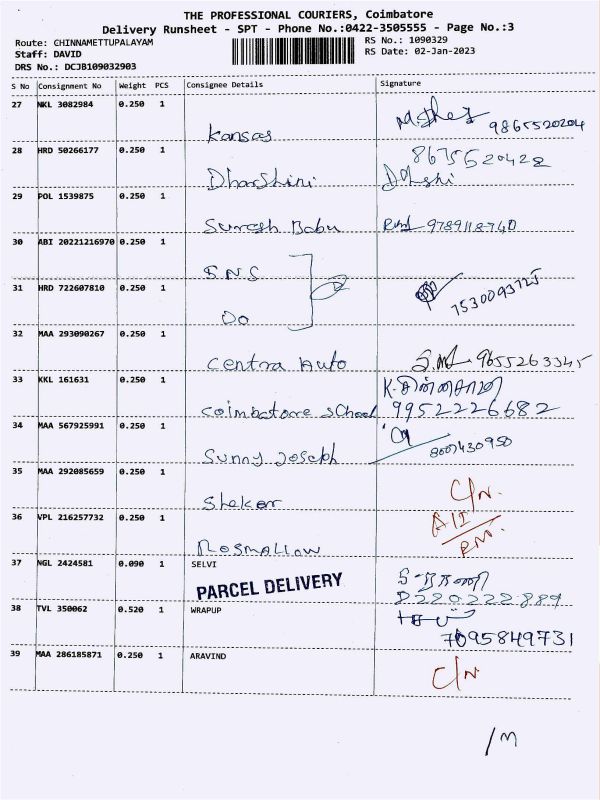 THE PROFESSIONAL COURIERS, Coimbatore
Delivery Runsheet - SPT - Phone No.:0422-3505555 - Page No.:3
Route: CHINNAMETTUPALAYAM RS No.: 1090329
Staff: DAVID RS Date: 02-Jan-2023
DRS No.: DCJB109032903
S No Consignment No Weight PCS Consignee Details Signature
27 NKL 3082984 0.250 1
Kansas 9865520204
28 HRD 50266177 0.250 1 8675620428
Dharshini
29 POL 1539875 0.250 1
Suresh Babu 9789118740
30 ABI 20221216970 0.250 1
SNS
31 HRD 722607810 0.250 1 7530093725
Do
32 MAA 293090267 0.250 1
Centra Auto 9655263345
33 KKL 161631 0.250 1
Coimbatore School 9952226682
34 MAA 567925991 0.250 1
Sunny Joseph 8007430950
35 MAA 292085659 0.250 1
Sheker C/N.
36 VPL 216257732 0.250 1
Rosmallow
37 NGL 2424581 0.090 1 SELVI
PARCEL DELIVERY
38 TVL 350062 0.520 1 WRAPUP
7095849731
39 MAA 286185871 0.250 1 ARAVIND
C/N
/M